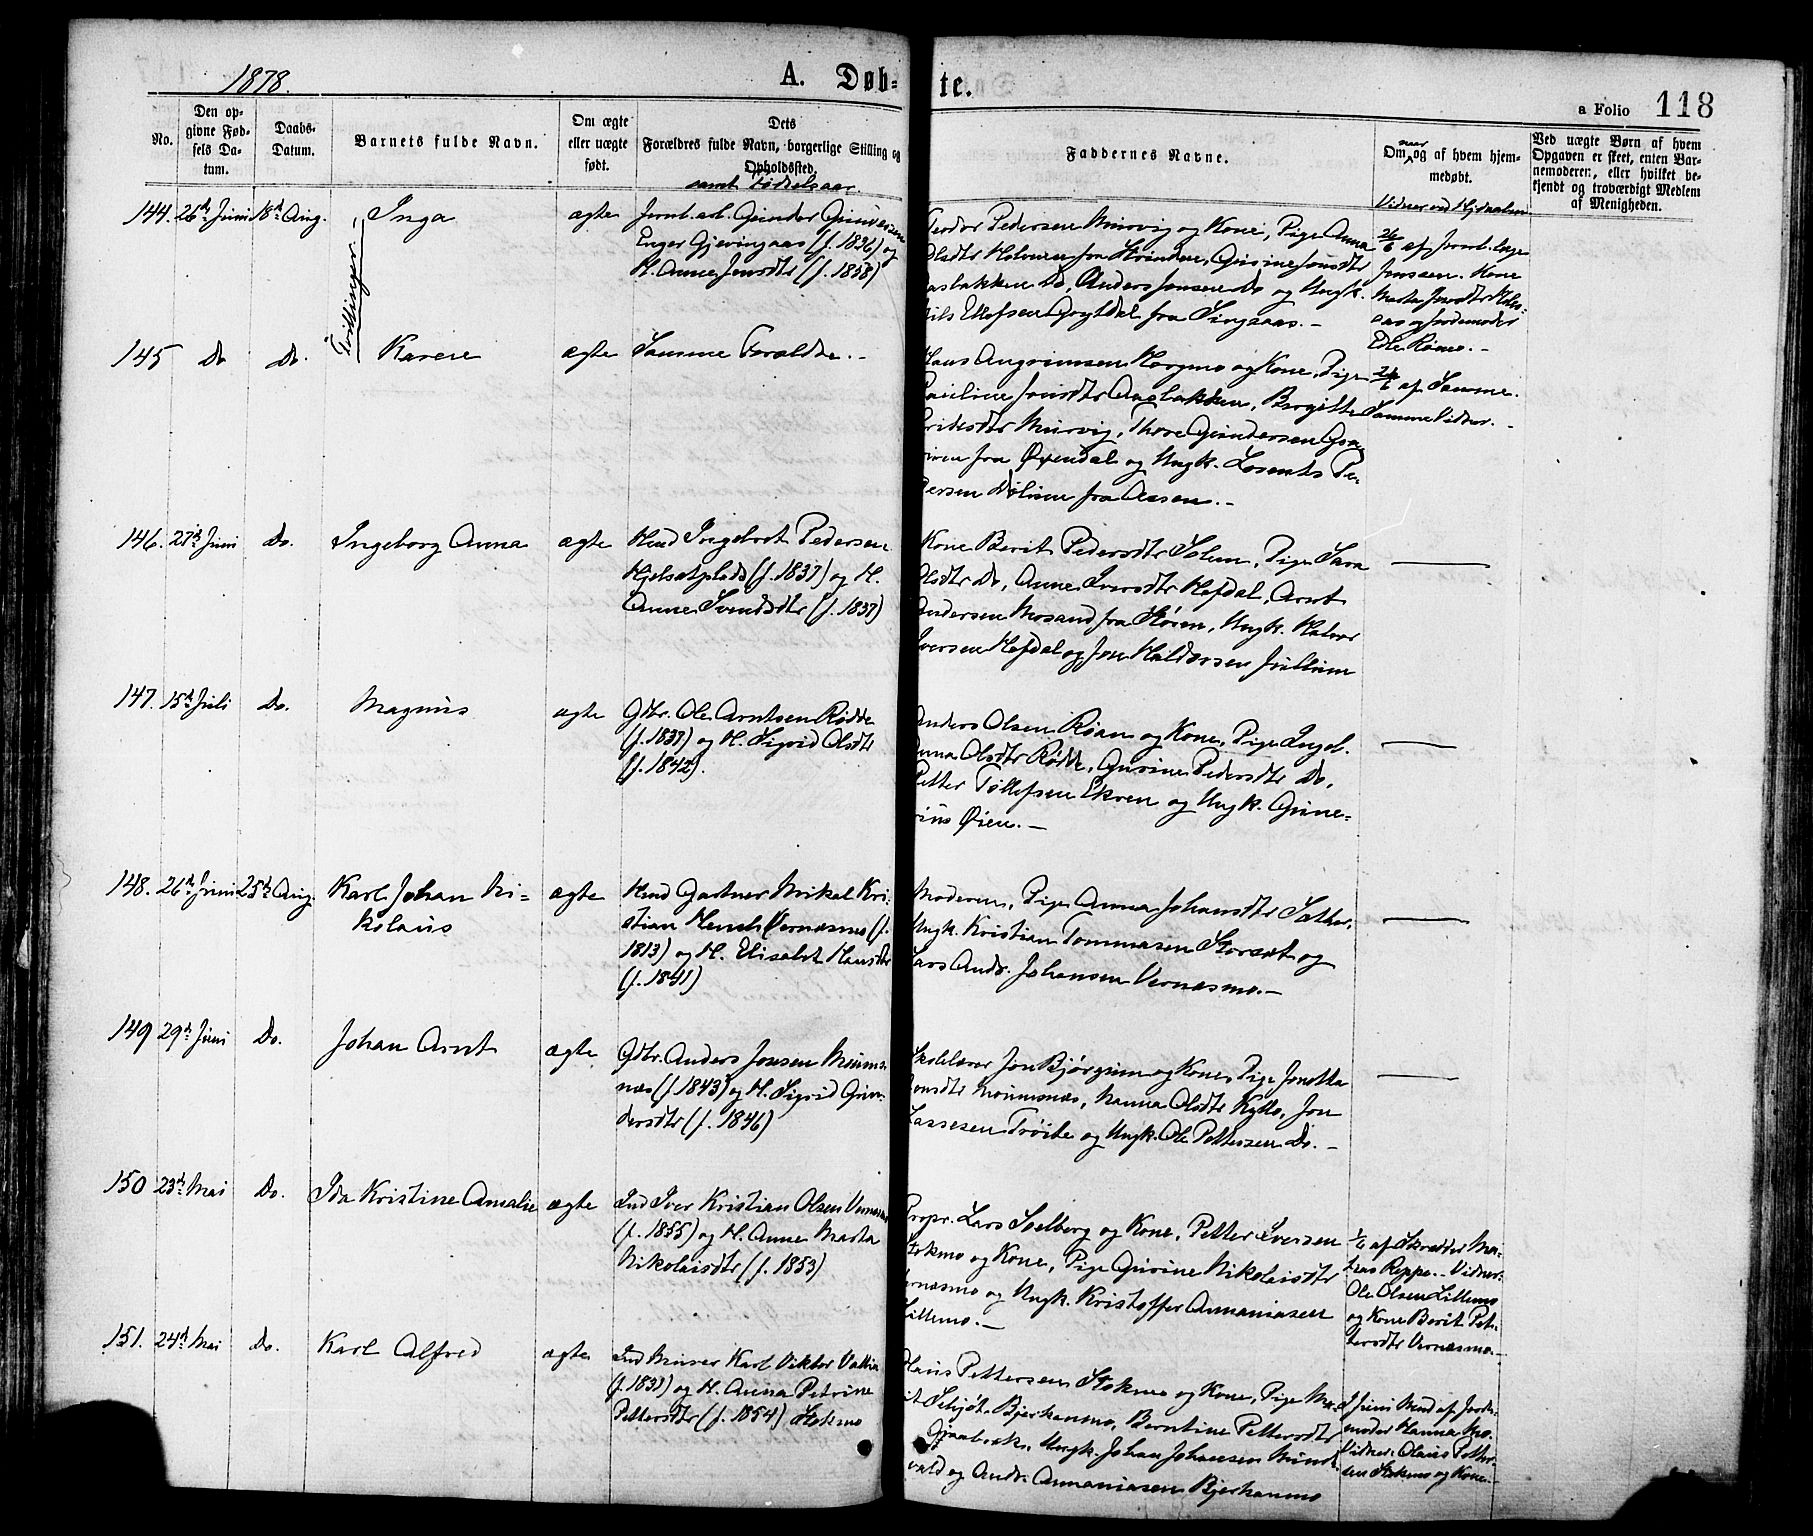 1878.
A. Døb-
te.
a Folio 118
No.
Den op-
givne Fød-
sels Da-
tum.
Daabs-
Datum.
Barnets fulde Navn.
Om ægte
eller uægte
født.
Dets
Forældres fulde Navn, borgerlige Stilling og
Opholdssted,
samt Fødselsaar.
Faddernes Navne.
Om naar og af hvem hjem-
medøbt.
Vidner ved Hjdaaben
Ved uægte Børn af hvem
Opgaven er skeet, enten Bar-
nemoderen, eller hvilket be-
kjendt og troværdigt Medlem
af Menigheden.
144. 26de Juni 18de Aug.
Tvillinger
Inga
ægte
Jernb. arb. Gunder Gundersen
Enger Gjevingaas (f. 1836) og
H. Anne Jonsdtr (f. 1838)
Pedersen Muruvig og Kone, Pige Anna
Olsdtr fra Strinden, Gurine Jonsdtr
Aasbakken Do, Anders Jonsen Do og Ungk.
Nils Ellefsen fra Singsaas. –
26/6 af Jernb.
Jonssen. Kone
Marta
og Jordemoder
145 Do Do.
Karen
ægte
Samme Forældre. –
Hans Angrimsen og Kone, Pige
Jonsdtr Aasbakken, Bergitte
Muruvig, Thore Gundersen
fra Øxendal og Ungk. Lorents Pe-
dersen fra Aasen. –
26/6 af Samme.
Samme Vidner. –
146. 27de Juni Do.
Ingeborg Anna
ægte
Hmd Ingebrt Pedersen
Hjelsetplads (f. 1837) og H.
Anne Svendsdtr (f. 1837)
Kone Berit Pedersdtr Solem, Pige Sara
Olsdtr Do, Anne Iversdtr Hofdal, Arnt
Andersen Mosand fra Støren, Ungk. Halvor
Iversen Hofdal og Jon Haldorsen
147. 15de Juli Do.
Magnus
ægte
Gdbr. Ole Arntsen Rødde
(f. 1837) og H. Sigrid Olsdtr
(f. 1842).
Anders Olsen Røan og Kone, Pige Ingeb.
Anna Olsdtr Rødde, Gurine Pedersdtr Do,
Petter Tøllefsen Ekren og Ungk. Gune-
rius Øien. –
148. 26de Juni 25de Aug.
Karl Johan Ni-
kolaus
ægte
Hmd Gartner Mikal Kri-
stian Vernæsmo (f.
1813) og H. Elisabet Hansdtr
(f. 1841)
Moderen, Pige Anna Johansdtr Sætter,
Ungk. Kristian Tommasen Storset og
Lars Andr. Johansen Vernæsmo. –
149 29de Juni Do.
Johan Arnt
ægte
Gdbr. Anders Jonsen Mums-
næs (f. 1843) og H. Sigrid Gun-
dersdtr (f. 1846)
Skolelærer Jon Bjørgum og Kone, Pige Jonetta
Jonsdtr Mumsnæs, Nanna Olsdtr Kyllo, Jon
Lassesen Trøite og Ungk. Ole Pettersen Do. –
150 23de Mai Do.
Ida Kristine Amalie
ægte
Ind. Iver Kristian Olsen Vernæsmo
(f. 1855) og H. Anne Marta
Nikolaisdtr (f. 1853)
Propr. Lars Selberg og Kone, Petter Iversen
Stokmo og Kone, Pige Gurine Nikolaisdtr
Vernæsmo og Ungk. Kristoffer Annaniasen
Lillemo. –
af Skrædder Ma-
tias Reppe. – Vidner:
Ole Olsen Lillemo
og Kone Berit Pet-
tersdtr Vernæsmo. –
151. 24de Mai Do.
Karl Alfred
ægte
Ind. Murer Karl Viktor Vallin
(f. 1837) og H. Anna Petrine
Pettersdtr (f. 1854) Stokmo
Olaus Pettersen Stokmo og Kone, Pige
Bjerkanmo, Berntine Pettersdtr
Graabræk, Ungk. Johan Johansen
og Andr. Annaniasen Bjerkanmo
Juni af Jorde-
moder Hanna Mo.
Vidner: Olaus Petter-
sen Stokmo og Kone. –